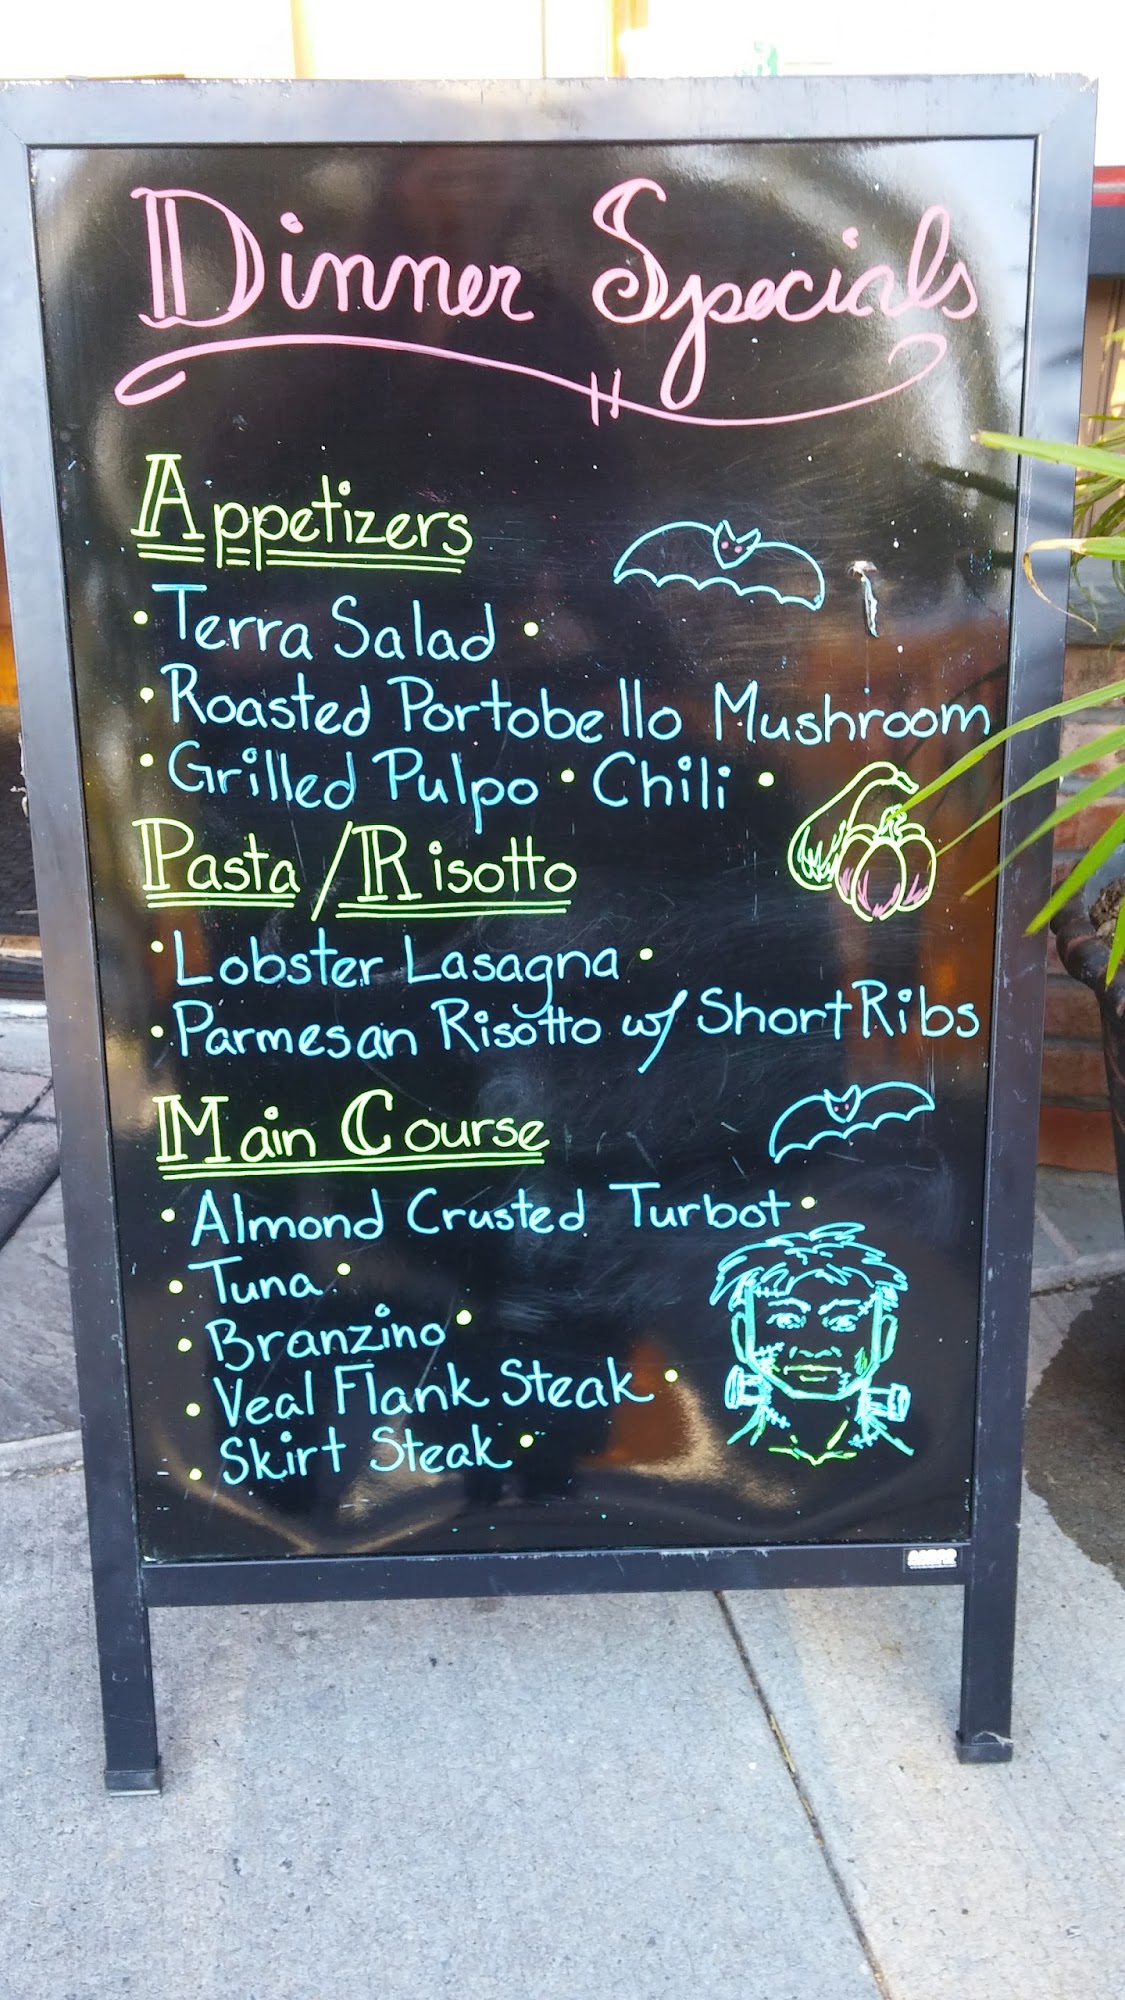 Dinner Specials
Appetizers
• Terra Salad •
• Roasted Portobello Mushroom
• Grilled Pulpo • Chili •
Pasta / Risotto
• Lobster Lasagna •
• Parmesan Risotto w/ Short Ribs
Main Course
• Almond Crusted Turbot •
• Tuna •
• Branzino •
• Veal Flank Steak •
• Skirt Steak •